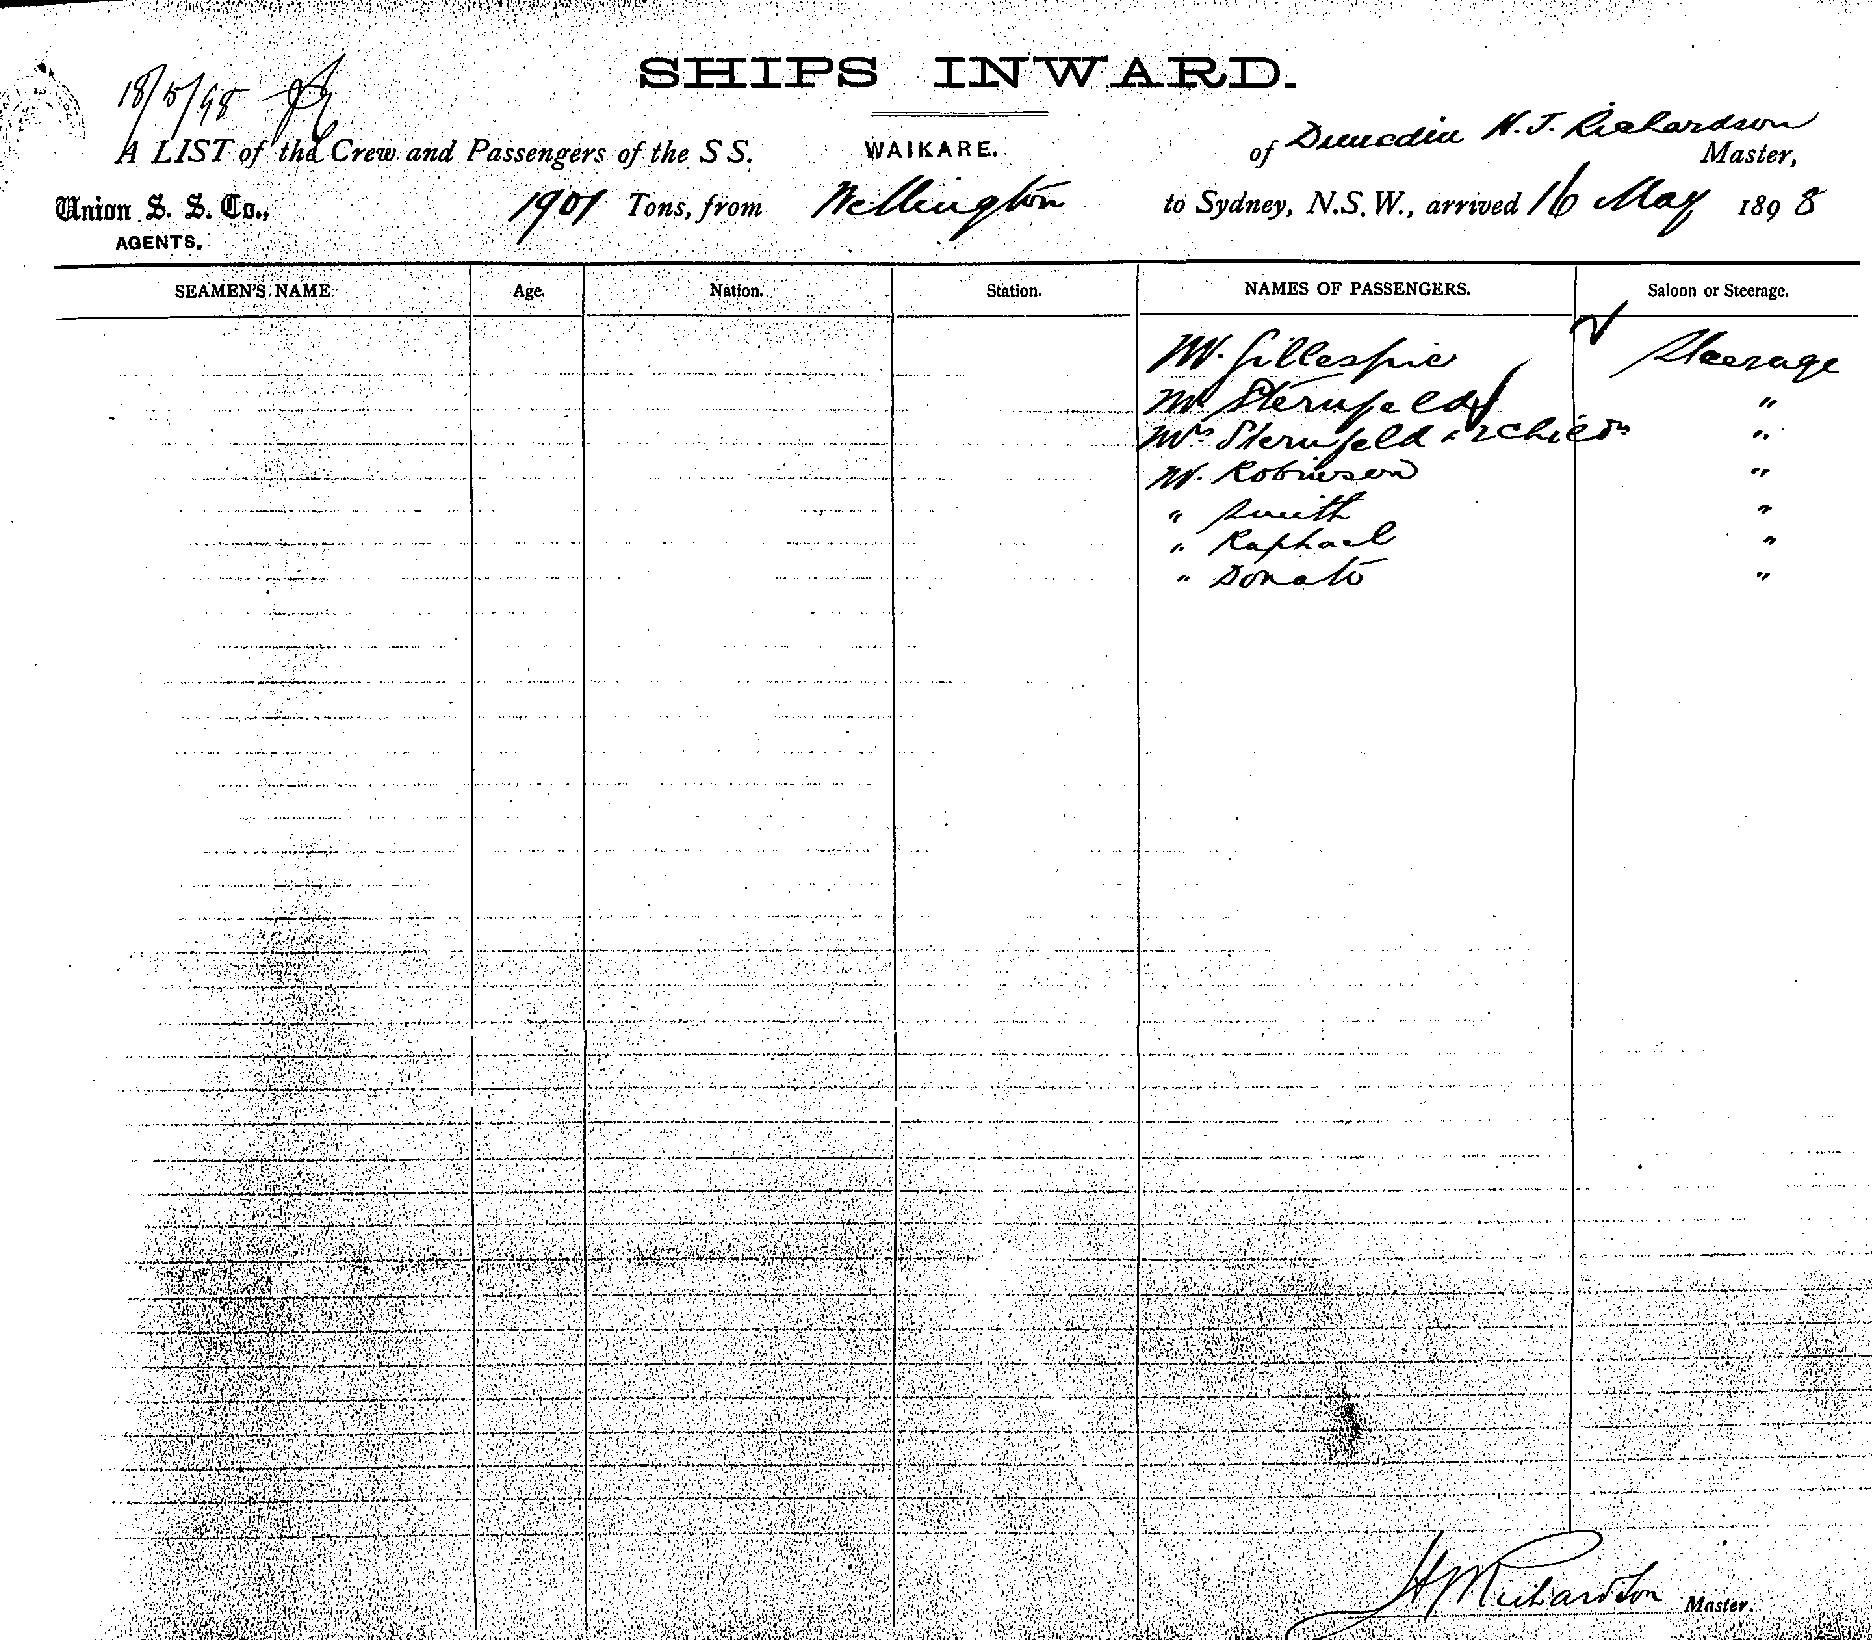 SHIPS INWARD.
18/5/98
A LIST of the Crew and Passengers of the S S. WAIKARE. of Dunedin H. J. Richardson Master,
Union S. S. Co., 1901 Tons, from Wellington to Sydney, N.S.W., arrived 16 May 1898
AGENTS.
SEAMEN'S NAME Age. Nation. Station. NAMES OF PASSENGERS. Saloon or Steerage.
Mr. Gillespie Steerage
Mr Sternfeld "
Mrs Sternfeld + 2 childn "
Mr. Robinson "
" Smith "
" Raphael "
" Donato "
Richardson Master.